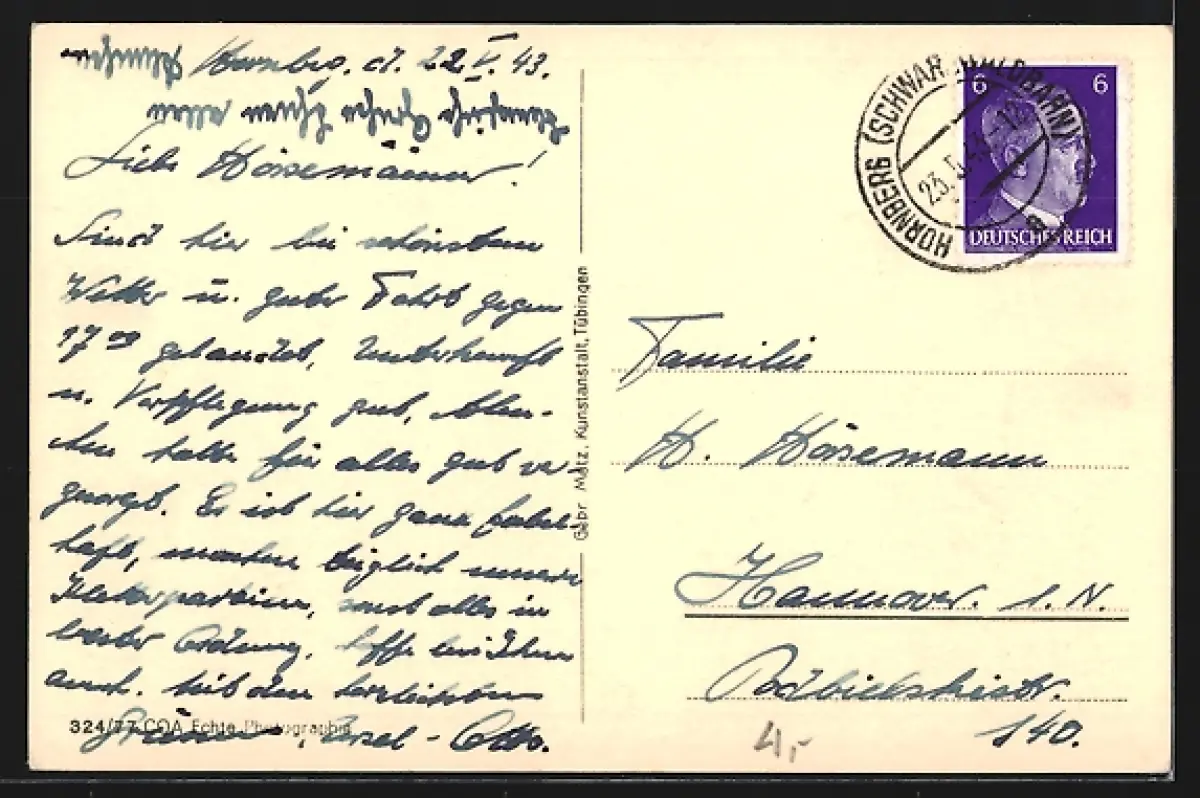 Hornbg. d. 22.V.43.
Liebe Hörsemänner!
Sind hier bei schönstem
Wetter u. guter Fahrt gegen
17 00 gelandet, Unterkunft
u. Verpflegung gut,
hatte für alles gut vor-
gesorgt. Es ist hier ganz fabel-
haft, machen täglich unsere
Kletterpartien, sonst alles in
bester Ordnung, hoffe bei Ihnen
auch. Mit den herzlichsten
Grüssen, Otto.
324/77 COA Echte Photographie
Gebr Metz, Kunstanstalt, Tübingen
HORNBERG (SCHWARZWALDBAHN)
23.5.43.-12
6 6
DEUTSCHES REICH
Familie
H. Hörsemann
Hannover. 1. N.
Podbielskistr.
140.
4,-